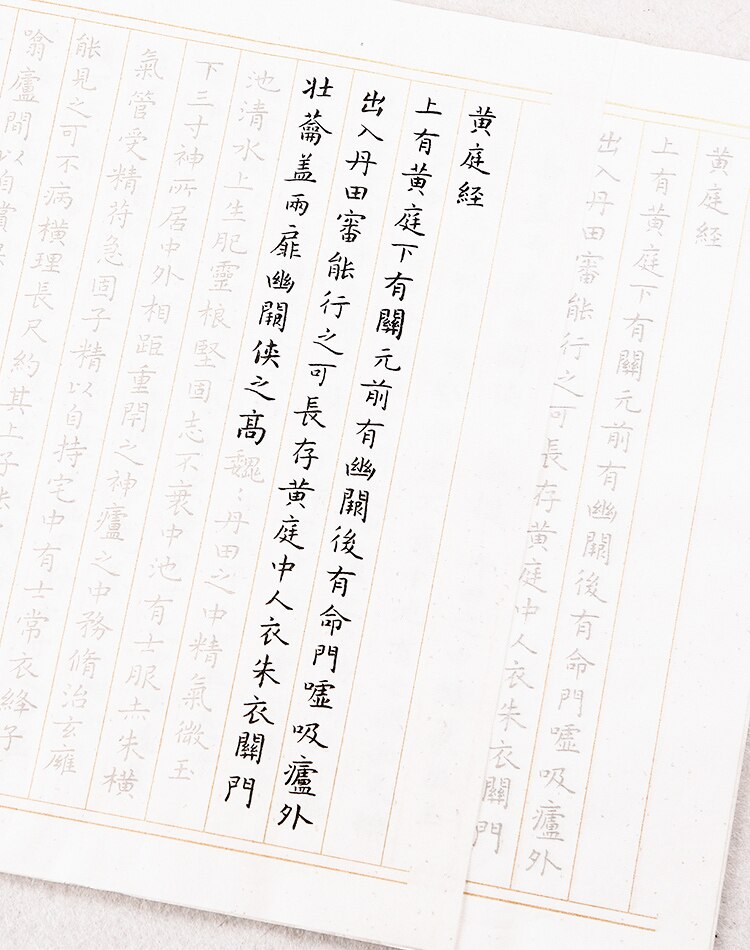 黄庭経
上有黄庭下有關元前有幽闕後有命門噓吸廬外
出入丹田審能行之可長存黄庭中人衣朱衣關門
黄庭経
上有黄庭下有關元前有幽闕後有命門噓吸廬外
出入丹田審能行之可長存黄庭中人衣朱衣關門
壯蘥盖兩扉幽闕俠之高巍〻丹田之中精氣微玉
池清水上生肥靈根堅固志不衰中池有士服赤朱橫
下三寸神所居中外相距重閉之神廬之中務脩治玄廱
氣管受精苻急固子精以自持宅中有士常衣絳子
能見之可不病橫理長尺約其上子
噏廬間以自賞